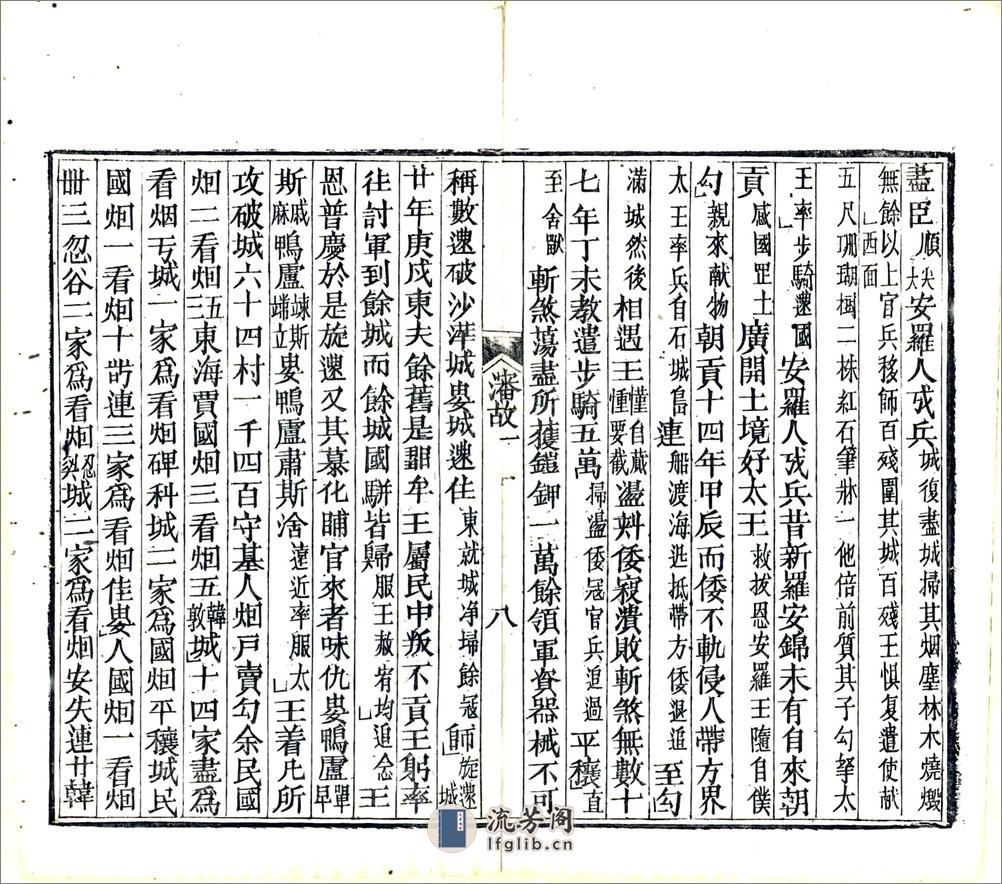 盡臣順大尖安羅人戍兵城復盡城掃其烟塵林木燒燬
無餘以上官兵移師百殘圍其城百殘王惧复遣使献
」西面
五尺珊瑚樹二株紅石筆牀一他倍前質其子勾拏太
王率步騎還國安羅人戍兵昔新羅安錦未有自來朝
貢感國罡土廣開土境好太王救拔恩安羅王隨自僕
勾」親來献物朝貢十四年甲辰而倭不軌侵入帶方界
太王率兵自石城島連船渡海迯抵帶方倭退追至勾
滿城然後相遇王幢自蕆 要截盪斜倭寇潰敗斬煞無數十
七年丁未教遣步騎五萬掃盪倭冦官兵追過平穰」直
至舍獸斬煞蕩盡所獲鎧鉀一萬餘領軍資器械不可
瀋故一
八
稱數還破沙溝城婁城還住東就城净掃餘冦師」旋還城
廿年庚戌東夫餘舊是鄒牟王屬民中叛不貢王躬率
往討軍到餘城而餘城國駢皆歸服王赦宥均」追念王
恩普慶於是旋還又其慕化隨官來者味仇婁鴨盧單早
斯戚麻鴨盧竦斯 端立婁鴨盧肅斯舍遠近率服太」王着凡所
攻破城六十四村一千四百守墓人烟戸賣勾余民國
烟二看烟三五東海賈國烟三看烟五敦韓城十四家盡爲
看烟亐城一家爲看烟碑科城二家爲國烟平穰城民
國烟一看烟十訾連三家爲看烟佳婁」人國烟一看烟
卌三忽谷二家爲看烟忽 城二家爲看烟安失連廿韓
流芳阁
lfglib.cn